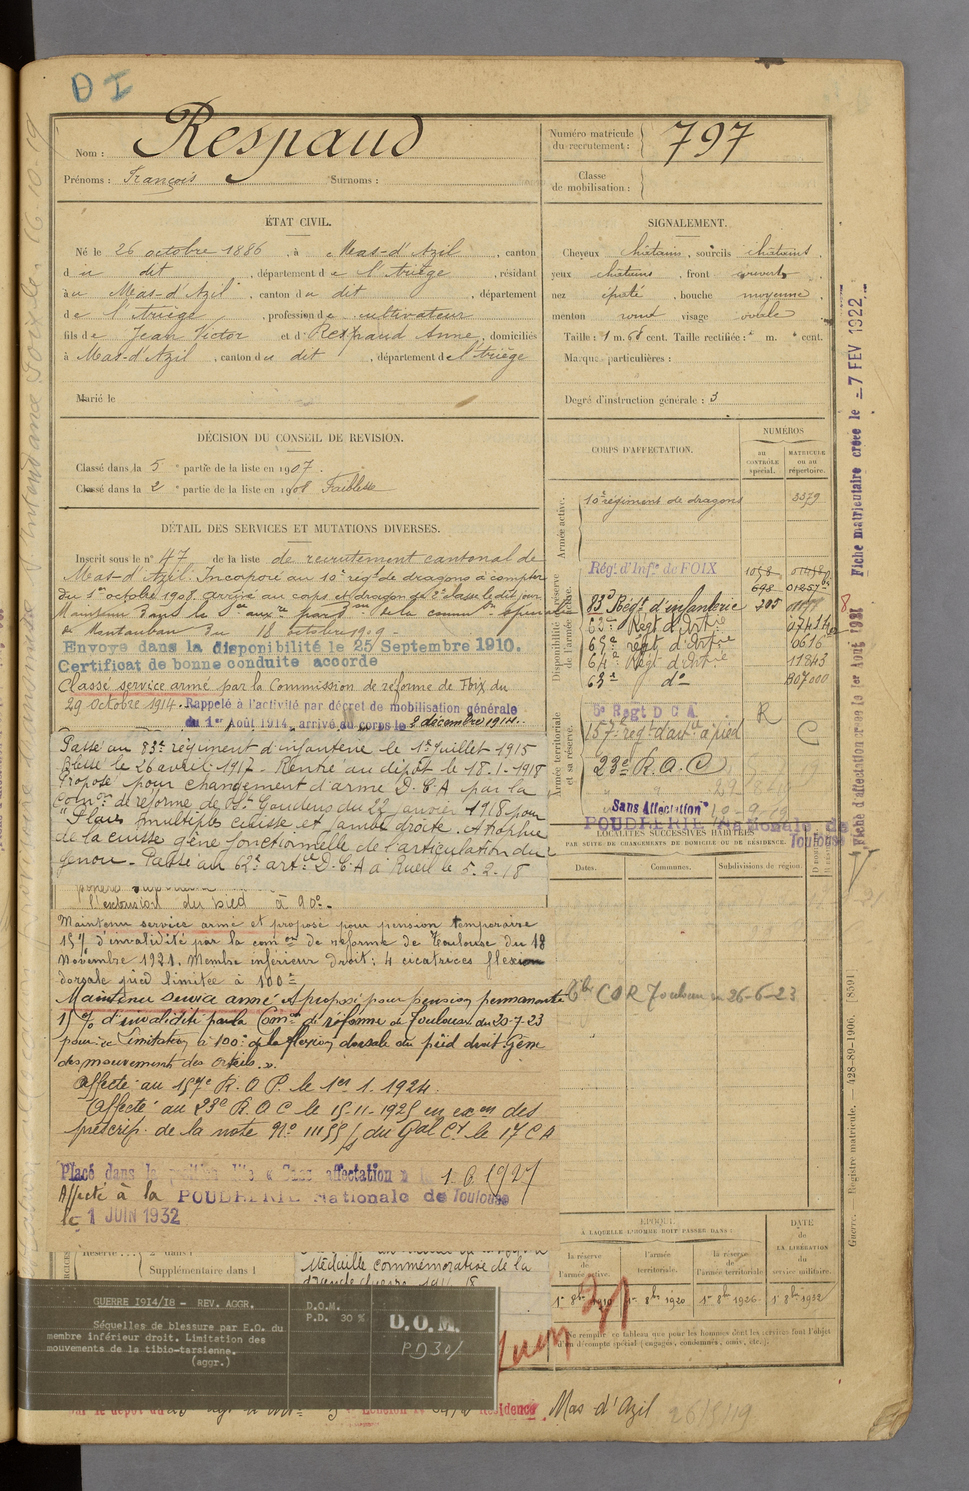 D I
Nom : Respaud
Prénoms : François Surnoms :
Numéro matricule du recrutement : 797
Classe de mobilisation :
ÉTAT CIVIL.
Né le 26 octobre 1886, à Mas-d'Azil, canton
du dit, département de l'Ariège, résidant
à u Mas-d'Azil, canton du dit, département
de l'Ariège, profession de cultivateur
fils de Jean Victor et de Respaud Anne, domiciliés
à Mas-d'Azil, canton du dit, département de l'Ariège
Marié le
SIGNALEMENT.
Cheveux châtains, sourcils châtains,
yeux châtains, front couvert,
nez épaté, bouche moyenne,
menton rond visage ovale
Taille : 1 m. 68 cent. Taille rectifiée : 1 m. cent.
Marques particulières :
Degré d'instruction générale : 3
DÉCISION DU CONSEIL DE REVISION.
Classé dans la 5e partie de la liste en 1907.
Classé dans la 2e partie de la liste en 1908 Faiblesse
DÉTAIL DES SERVICES ET MUTATIONS DIVERSES.
Inscrit sous le n° 47 de la liste de recrutement cantonal de
Mas-d'Azil. Incorporé au 10e régt de dragons à compter
du 1er octobre 1908, arrivé au corps et dragon de 2e classe le dit jour.
Maintenu dans le
de Montauban du 18 octobre 1909 -
Envoyé dans la disponibilité le 25 Septembre 1910.
Certificat de bonne conduite accordé
Classé service armé par la Commission de réforme de Foix du
29 Octobre 1914. Rappelé à l'activité par décret de mobilisation générale
du 1er Août 1914, arrivé au corps le 2 décembre 1914.
Passé au 83e régiment d'infanterie le 1er Juillet 1915
Blessé le 26 avril 1917 - Rentré au dépôt le 18-1-1918
Proposé pour changement d'arme D.C.A par la
Comon de réforme de St Gaudens du 22 janvier 1918 pour
"Plaies multiples cuisse et jambe droite. Atrophie
de la cuisse gêne fonctionnelle de l'articulation du
genou - Passé au 62e artie D.C.A à Rueil le 5-2-18
l'extension du pied à 90°-
Maintenu service armé et proposé pour pension temporaire
15% d'invalidité par la comon de réforme de Toulouse du 18
Novembre 1921. Membre inférieur droit : 4 cicatrices flexion
dorsale pied limitée à 100°
Maintenu service armé et proposé pour pension permanente
15% d'invalidité par la Comon de réforme de Toulouse du 20-7-23
pour : Limitation à 100° de la flexion dorsale du pied droit gêne
des mouvements des orteils.
Affecté au 157e R.A.P. le 1er 1. 1924.
Affecté au 23e R.A.C le 15-11-1925 en exon des
prescrip. de la note No 11155/ du Gal Ct le 17 C A
Placé dans la position dite « Sans affectation » le 1 6 1927
Affecté à la POUDRERIE Nationale de Toulouse
le 1 JUIN 1932
CORPS D'AFFECTATION.
NUMÉROS
au CONTRÔLE spécial.
MATRICULE ou au répertoire.
Armée active.
10e régiment de dragons 3379
Disponibilité et réserve de l'armée active.
Régt d'Infie de FOIX 1058
698
83e Régt d'infanterie 205
62e Regt d'Artie
65e régt d'Artie 0616
64e Régt d'Artie 11843
63e do 807000
Armée territoriale et sa réserve.
Regt D C A R
157e régt d'artie à pied C
23e R.A.C
Sans Affectation
POUDRERIE Nationale de Toulouse
LOCALITÉS SUCCESSIVES HABITÉES
PAR SUITE DE CHANGEMENTS DE DOMICILE OU DE RÉSIDENCE.
Dates. Communes. Subdivisions de région.
COR Toulouse 26-6-23
ÉPOQUE
À LAQUELLE L'HOMME DOIT PASSER DANS :
la réserve de l'armée active. l'armée territoriale. la réserve de l'armée territoriale
DATE de LA LIBÉRATION du service militaire.
1er 8bre 1910 1er 8bre 1920 1er 8bre 1926 1er 8bre 1932
Ne remplir ce tableau que pour les hommes dont les services font l'objet
d'un décompte spécial (engagés, condamnés, omis, etc.).
Supplémentaire dans l
Médaille commémorative de la
GUERRE 1914/18 - REV. AGGR.
Séquelles de blessure par E.O. du
membre inférieur droit. Limitation des
mouvements de la tibio-tarsienne.
(aggr.)
D.O.M.
P.D. 30 %
D.O.M.
PD30/
résidence Mas-d'Azil 26/8/19
Fiche matriculaire créée le -7 FEV 1922
Fiche d'affectation créée le 1er Aout 1921
Guerre. Registre matricule. — 428-89-1906. [8591]